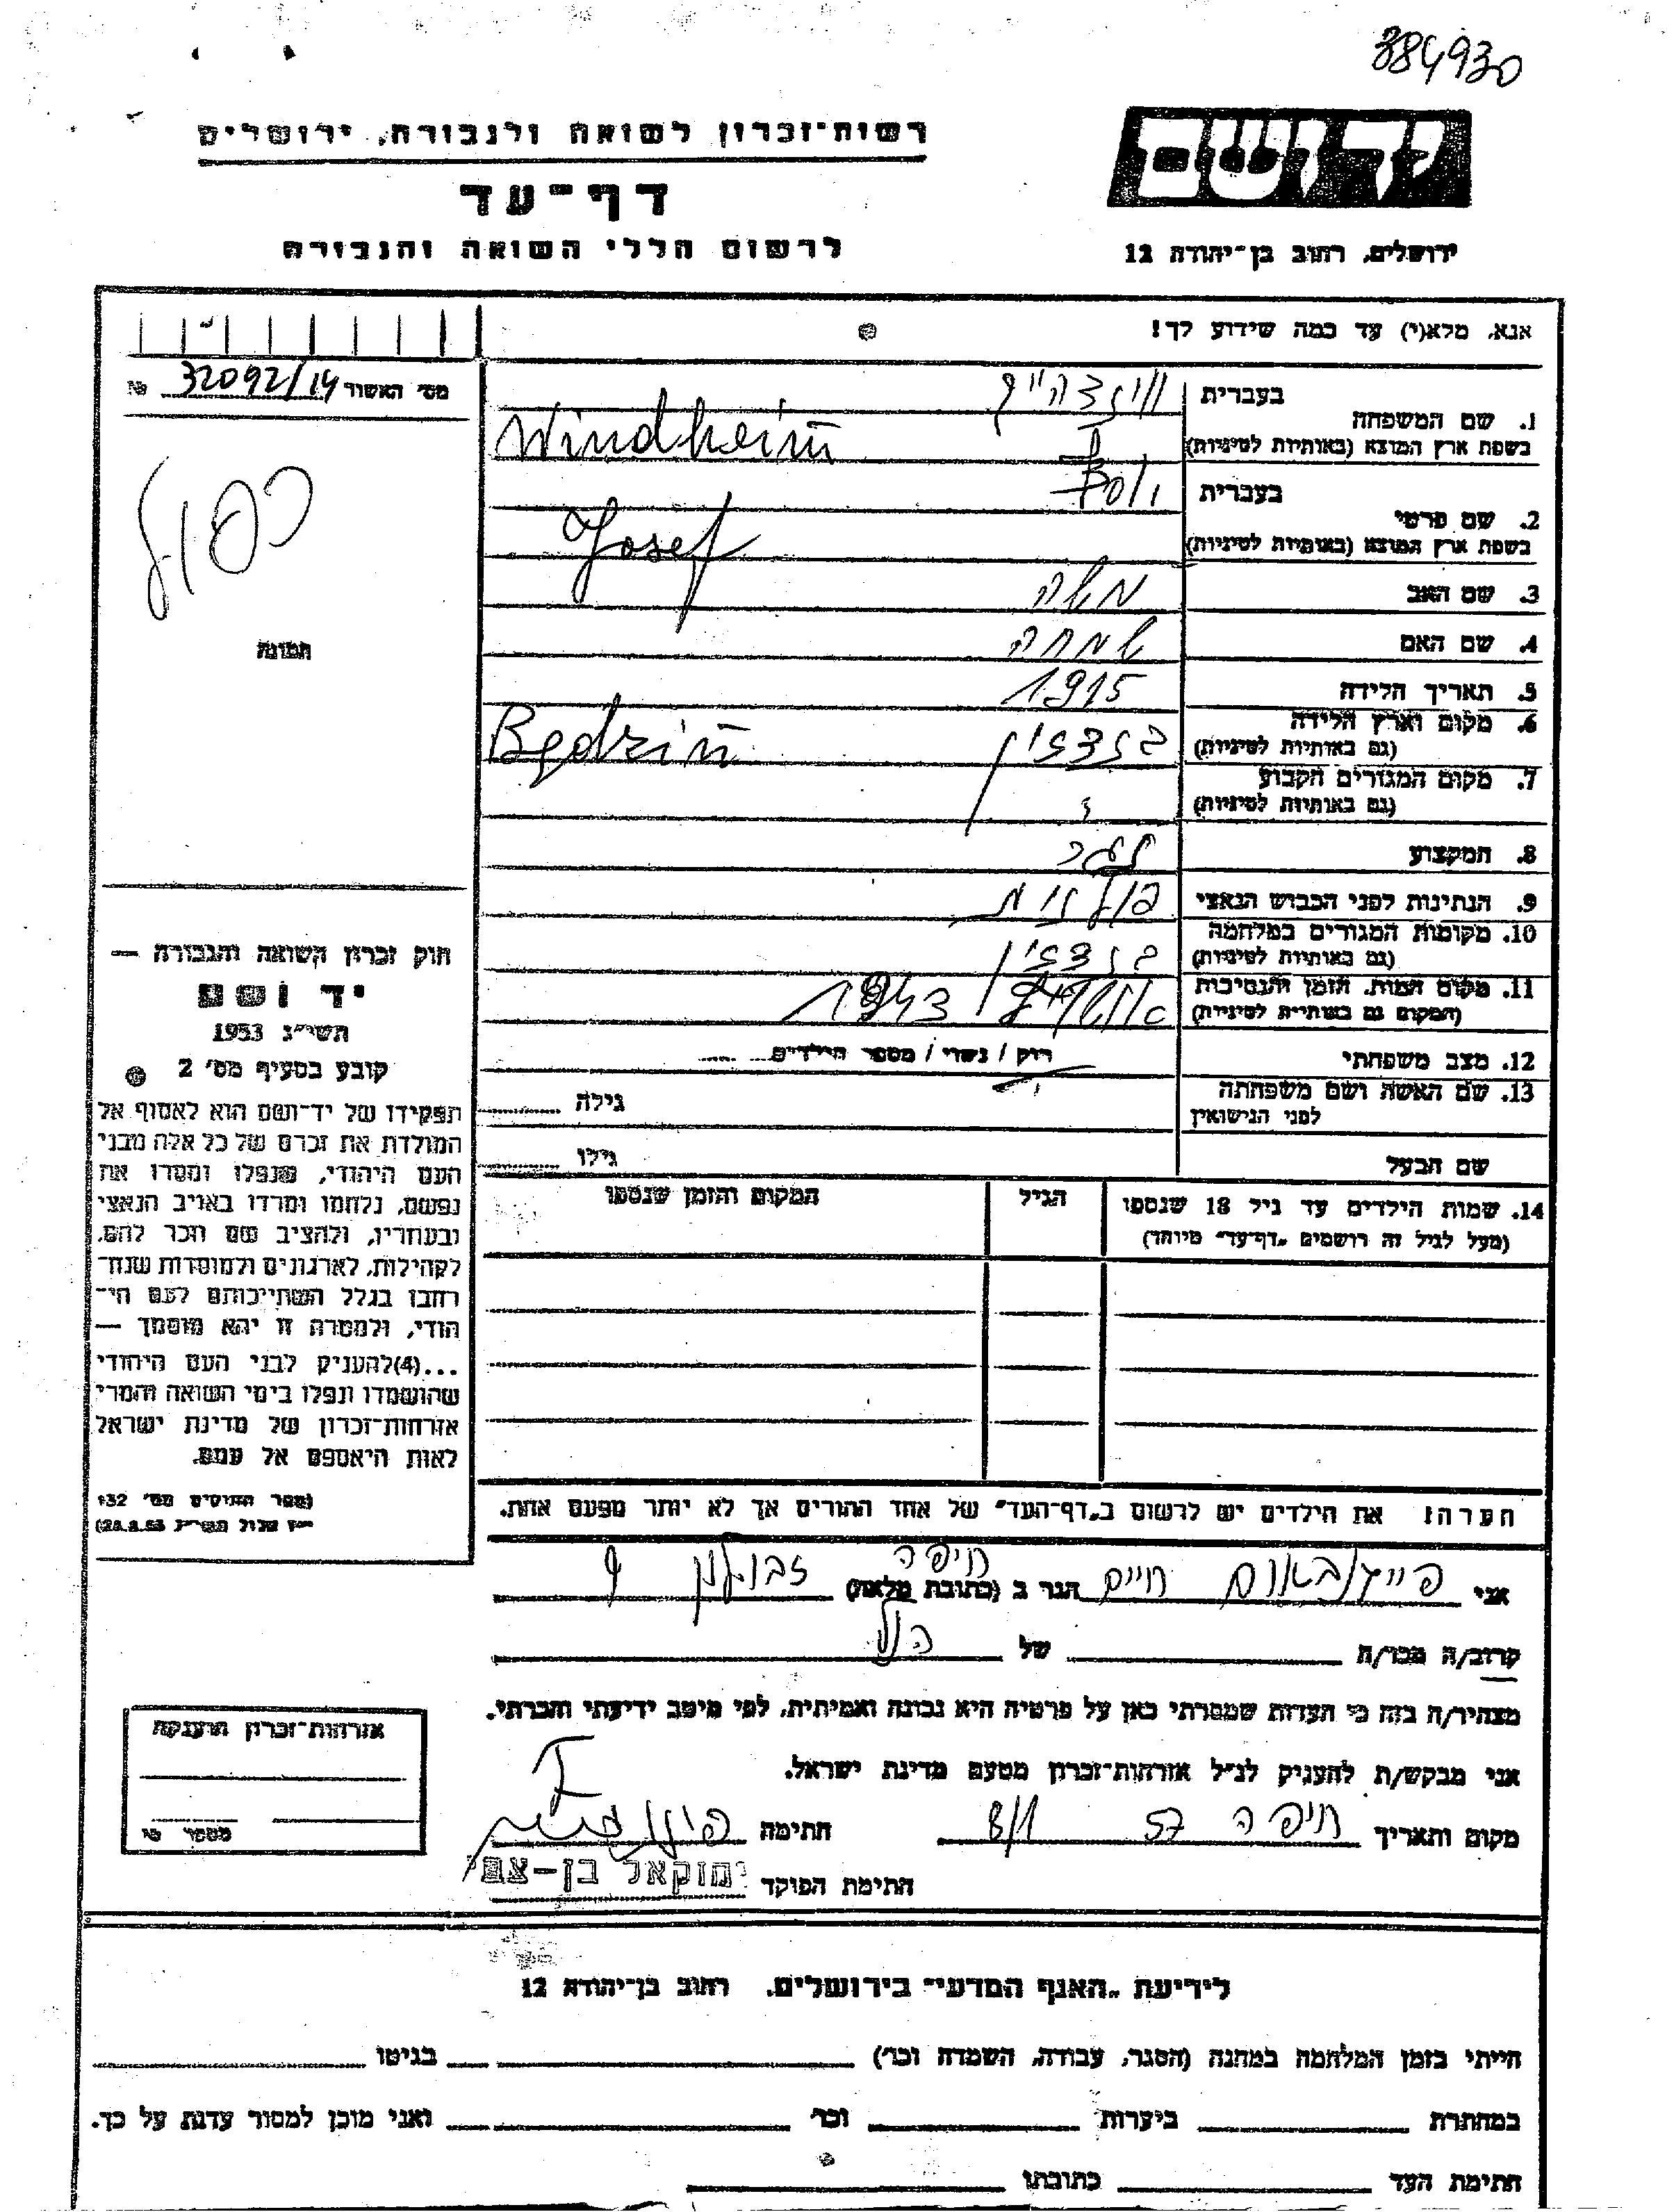 384930
רשות־זכרון לשואה ולגבורה, ירושלים
יד ושם
דף־עד
לרשום חללי השואה והגבורה
ירושלים, רחוב בן־יהודה 12
אנא, מלא(י) עד כמה שידוע לך!
מס׳ האשור 32092/14
1. שם המשפחה
בעברית ווינדהיים
בשפת ארץ המוצא (באותיות לטיניות) Windheim
2. שם פרטי
בעברית יוסף
בשפת ארץ המוצא (באותיות לטיניות) Josef
3. שם האב משה
4. שם האם שמחה
5. תאריך הלידה 1915
6. מקום וארץ הלידה בנדצין Będzin
(גם באותיות לטיניות)
7. מקום המגורים הקבוע
(גם באותיות לטיניות)
8. המקצוע
9. הנתינות לפני הכבוש הנאצי פולנית
10. מקומות המגורים במלחמה בנדצין
(גם באותיות לטיניות)
11. מקום המות, הזמן והנסיבות אושוויץ 1943
(המקום גם באותיות לטיניות)
12. מצב משפחתי רוק / נשוי / מספר הילדים
13. שם האשה ושם משפחתה גילה
לפני הנישואין
שם הבעל גילו
14. שמות הילדים עד גיל 18 שנספו הגיל המקום והזמן שנספו
(מעל לגיל זה רושמים „דף־עד״ מיוחד)
כפול
תמונה
חוק זכרון השואה והגבורה —
יד ושם
תשי״ג 1953
קובע בסעיף מס׳ 2
תפקידו של יד־ושם הוא לאסוף אל
המולדת את זכרם של כל אלה מבני
העם היהודי, שנפלו ומסרו את
נפשם, נלחמו ומרדו באויב הנאצי
ובעוזריו, ולהציב שם וזכר להם,
לקהילות, לארגונים ולמוסדות שנח־
רבו בגלל השתייכותם לעם הי־
הודי, ולמטרה זו יהא מוסמך —
...(4)להעניק לבני העם היהודי
שהושמדו ונפלו בימי השואה והמרי
אזרחות־זכרון של מדינת ישראל
לאות היאספם אל עמם.
(ספר החוקים מס׳ 132
הערה! את הילדים יש לרשום ב„דף־העד״ של אחד ההורים אך לא יותר מפעם אחת.
אני פייגנבאום חיים הגר ב (כתובת מלאה) חיפה זבולון 9
קרוב/ה מכר/ה של הנ״ל
מצהיר/ה בזה כי העדות שמסרתי כאן על פרטיה היא נכונה ואמיתית, לפי מיטב ידיעתי והכרתי.
אני מבקש/ת להעניק לנ״ל אזרחות־זכרון מטעם מדינת ישראל.
מקום ותאריך חיפה 57 8/1 חתימה
חתימת הפוקד
אזרחות־זכרון הוענקה
מספר
לידיעת „האגף המדעי״ בירושלים, רחוב בן־יהודה 12
הייתי בזמן המלחמה במחנה (הסגר, עבודה, השמדה וכו׳) בגיטו
במחתרת ביערות וכו׳ ואני מוכן למסור עדות על כך.
חתימת העד כתובתו